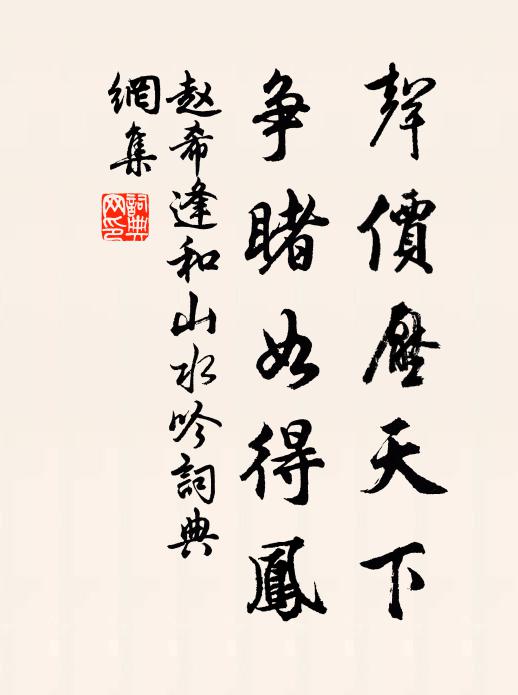 聲價壓天下
争睹如得鳳
赵希逢和山水吟詞典
網集
詞典网印